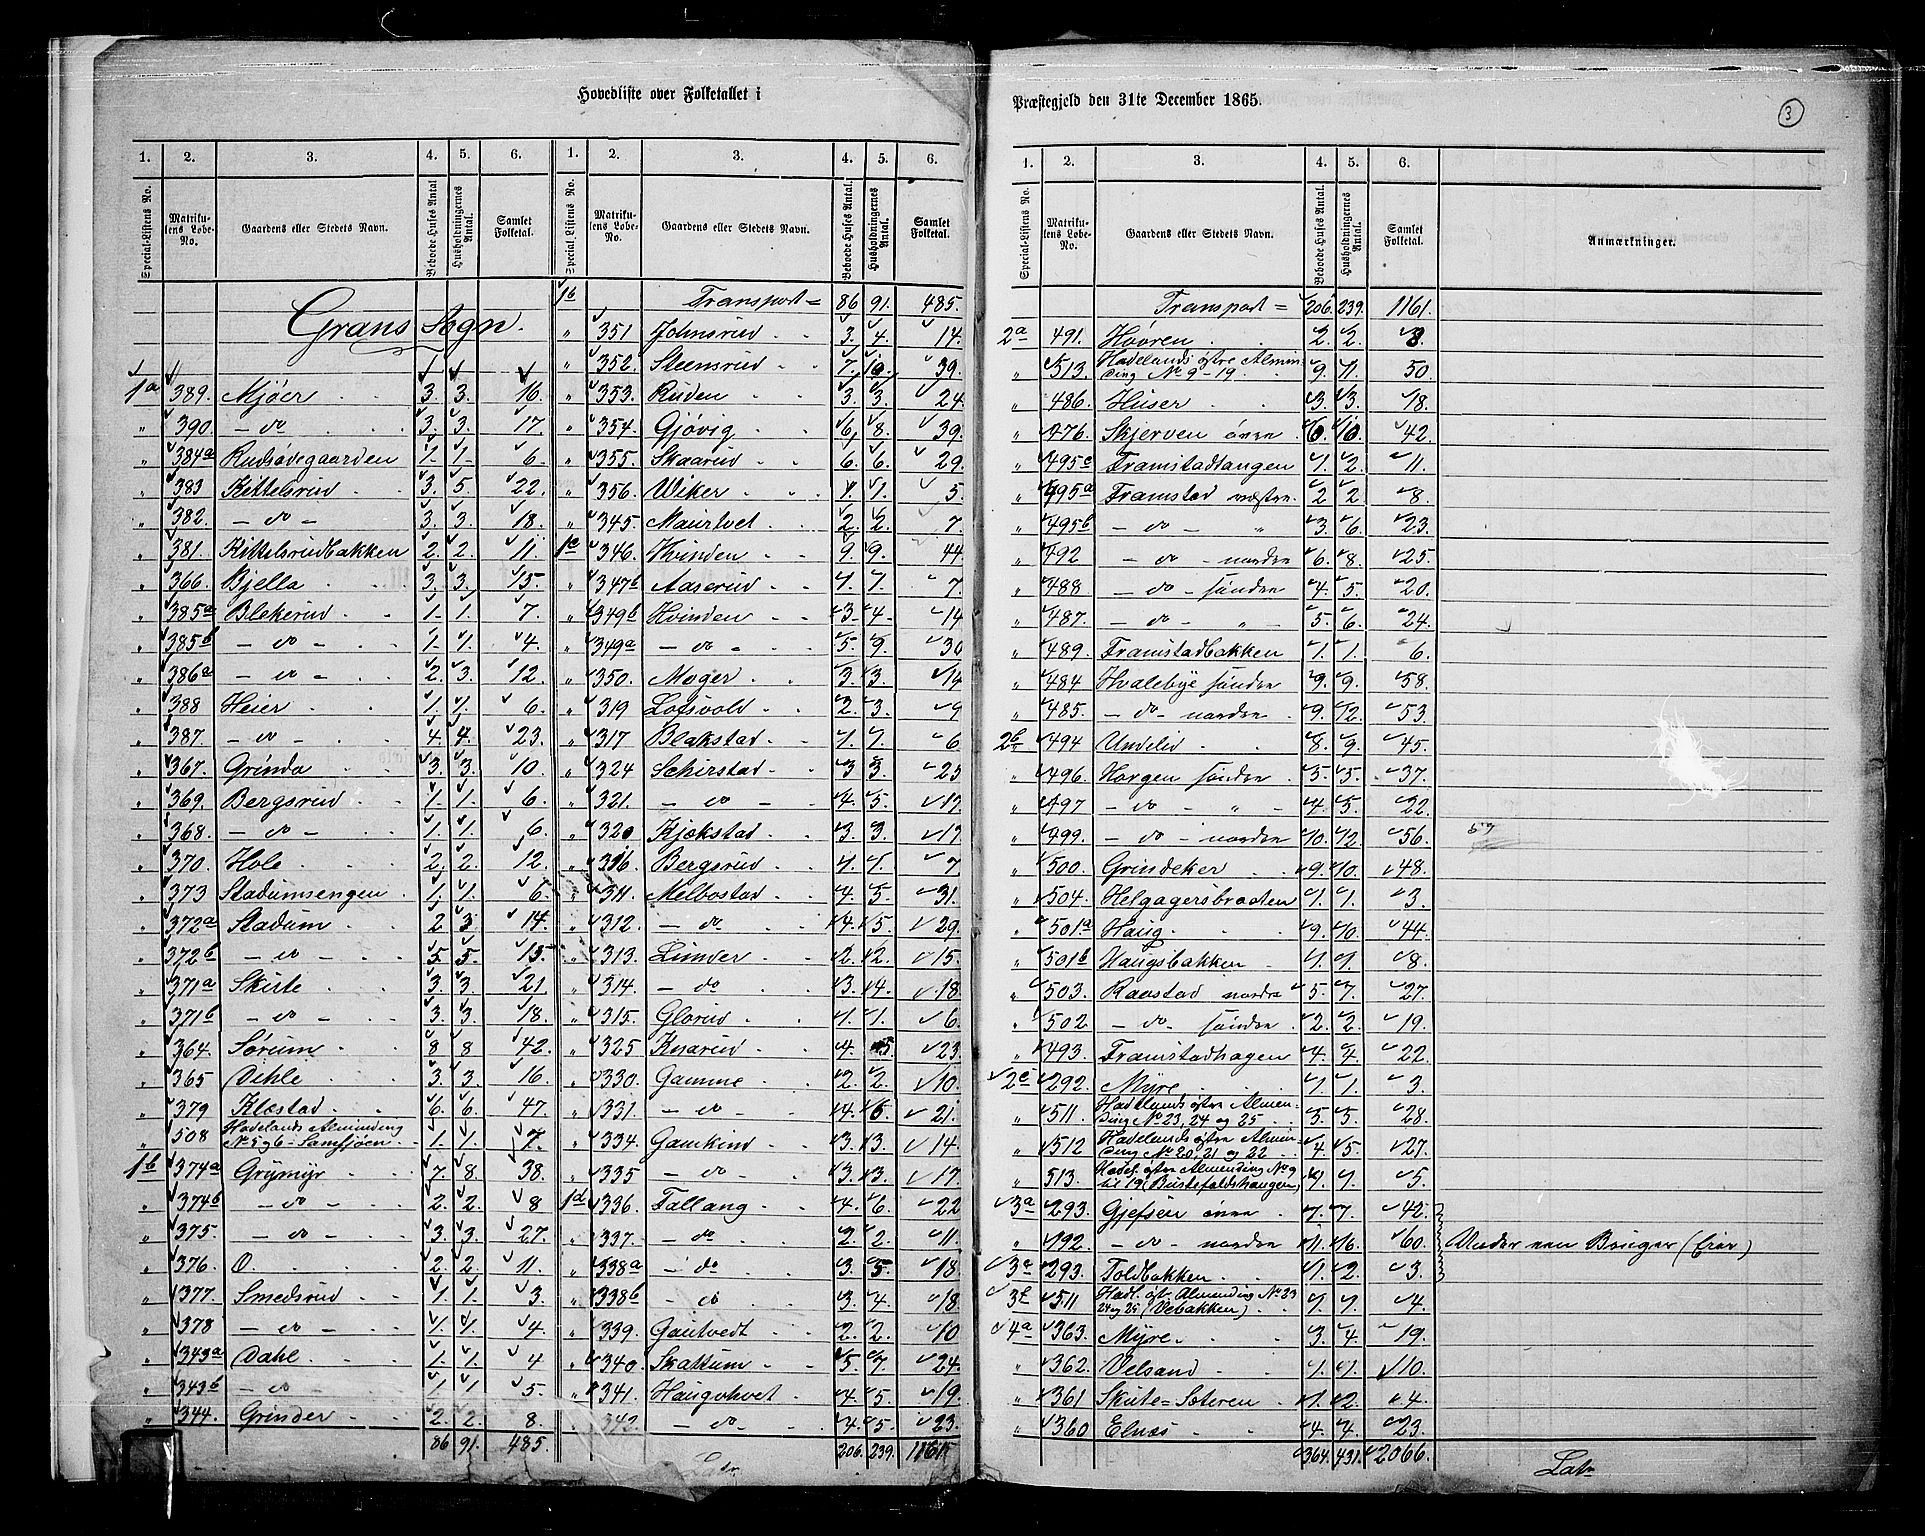 Hovedliste over Folketallet i
1. 2. 3. 4. 5. 6. 1. 2. 3. 4. 5. 6.
Special-Listens No. Matrikulens Løbe-No. Gaardens eller Stedets Navn. Beboede Huses Antal Husholdningernes Antal. Samlet Folketal. Special-Listens No. Matrikulens Løbe-No. Gaardens eller Stedets Navn. Beboede Huses Antal. Husholdningernes Antal. Samlet Folketal.
Grans Sogn.
1a 389. Mjøer 3. 3. 16.
" 390. - do 3. 3. 17.
" 384a Rudsødegaarden 1. 1. 6.
" 383 Kittelsrud 3. 5. 22.
" 382. - do - 3. 3. 18.
" 381. Kittelsrudbakken 2. 2. 11.
" 366. Bjella 3. 3. 15.
" 385a Blekerud 1. 1. 7.
" 385b - do - 1. 1. 4.
" 386a - do - 2. 3. 12.
" 388 Heier 1. 1. 6.
" 387. - do - 4. 4. 23.
" 367. Grinda 3. 3. 10.
" 369. Bergsrud 1. 1. 6.
" 368. - do - 1. 1. 6.
" 370. Hole 2. 2. 12.
" 373 Stadumsengen 1. 1. 6.
" 372a Stadum 2 3. 14.
" 372b - do - 5. 5. 15.
" 371a Skute 3. 3. 21
" 371b - do - 3. 3. 18.
" 364. Sørum 8 8 42.
" 365 Dehle 3. 3. 16.
" 379 Klæstad 6. 6. 47.
" 508 Hadelands Alminding No 5 og 6 - Samsjøen 1. 1. 7.
1b 374a Grymyr 7. 8. 38.
" 374b - do - 2. 2. 8
" 375. - do - 3. 3. 27.
" 376. O. 2. 2. 11.
" 377. Smedsrud 1. 1. 3.
" 378 - do - 1. 1. 4.
" 343a Dahl 1. 1. 4
" 343b - do - 1. 1 5.
" 344. Grinder 2. 2. 8.
86 91. 485.
1b Transport = 86 91. 485.
" 351 Johnsrud 3. 4. 14.
" 352. Steensrud 7. 10. 39.
" 353. Ruden 3. 3. 24.
" 354. Gjøvig 6. 8. 39.
" 355. Skaarud 6. 6. 29.
" 356. Wiker 1. 1. 5.
" 345. Maurtvet 2. 2. 7.
1c 346. Hvinden 9. 9. 44.
" 347b Aaserud 1. 1. 7.
" 349b Hvinden 3. 4. 14
" 349a - do - 5. 9. 30
" 350. Moger 3. 3. 14
" 319 Lotsvold 2. 3. 9
" 317 Blakstad 1. 1. 6
" 324 Schirstad 3 3. 25
" 321. - do - 4. 5. 17.
" 320 Kjækstad 3. 3. 17.
" 316. Bergsrud 1. 1. 7
" 311. Melbostad 4. 5. 31.
" 312. - do 4. 5. 29.
" 313. Lunder 2. 2. 15.
" 314. - do 3. 4. 18.
" 315. Glorud 1. 1. 6.
" 325 Knarud 4. 5 23.
" 330. Gamme 2. 2. 10.
" 331. - do - 4. 6. 21.
" 334. Gamkind 3. 3. 14.
" 335 - do 3. 3. 17.
1d 336. Tallang 4. 6. 22
" 337. - do 2. 2. 11.
" 338a - do 3. 5. 18.
" 338b - do 3. 4. 18
" 339. Gautvedt 2. 2. 10
" 340. Skattum 5. 7. 24.
" 341. Haugshvet 4. 5. 19.
342. - do - 4. 5. 23.
206. 239. 1161
Lat.
Præstegjeld den 31te December 1865.
3
1. 2. 3. 4. 5. 6.
Special-Listens No. Matrikulens Løbe-No. Gaardens eller Stedets Navn. Beboede Huses Antal. Husholdningernes Antal. Samlet Folketal. Anmærkninger.
Transport = 206. 239. 1161.
2a 491. Hovren 2. 2. 8.
" 513. Hadelands østre Alminding No 9-19 9. 11. 50.
" 486. Huser 3. 3. 18.
" 476. Skjerven øvre 6. 10. 42.
" 495c Framstadtangen 1. 2. 11.
" 495a Framstad vestre 2 2. 8.
" 495b - do - " 3. 6. 23.
" 492 - do - nordre 6. 8. 25.
" 488 - do - søndre 4. 5. 20.
" 487. - do - " - 5. 6. 24.
" 489. Framstadbakken 1. 1. 6.
" 484 Hvalebye søndre 9. 9. 58.
" 485. - do - nordre 9. 12. 53.
2b 494 Undelid 8. 9. 45.
" 496. Horgen søndre 5. 5. 37.
" 497 - do - " - 4. 5. 22.
" 499. - do - nordre 10. 12. 56. 57
" 500. Grindeker 9. 10. 48.
" 504. Helgagersbraaten 1. 1. 3.
" 501a Haug 9. 10. 44.
" 501b Haugsbakken 1. 1. 8.
" 503. Raastad nordre 5. 7. 27.
" 502. - do - søndre 2. 2. 19.
" 493. Framstadhagen 4. 4. 22.
2c 292. Myre 1. 1. 3.
" 511. Hadelands østre Alminding No 23, 24 og 25 5. 5. 28.
" 512 Hadelands østre Alminding No 20, 21 og 22 4. 5. 27.
" 513. Hadel. østre Alminding No 9 til 19 (Bustefaldshaugen) 1. 1. 5.
3a 293. Gjefsen øvre 7. 7. 42.
" 192. - do - nordre 11. 16. 60. Under een Bruger (Eier)
3a 293. Toldbakken 1. 2. 3.
3b 511 Hadl. østr. Alminding No 23 24 og 25 (Vebakken) 1. 1. 4.
4a 363. Myre 3. 4. 19.
" 362. Velsand 1. 1. 10.
" 361 Skute-Sæteren 1. 2. 4.
" 360 Elnæs 4. 4. 23.
364. 431. 2066.
Lat.